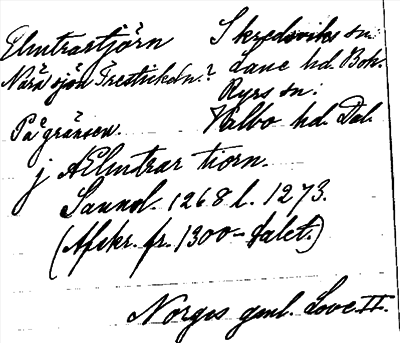 Elmtrastjörn Skredsviks sn:
Nära sjön Trestickeln? Lane hd. Boh.
Ryrs sn:
På gränsen. Valbo hd. Dal.
j Ælmtrar tiorn.
Saml. 1268 l. 1273.
(Afskr. fr. 1300-talet.)
Norges gml. Love II.